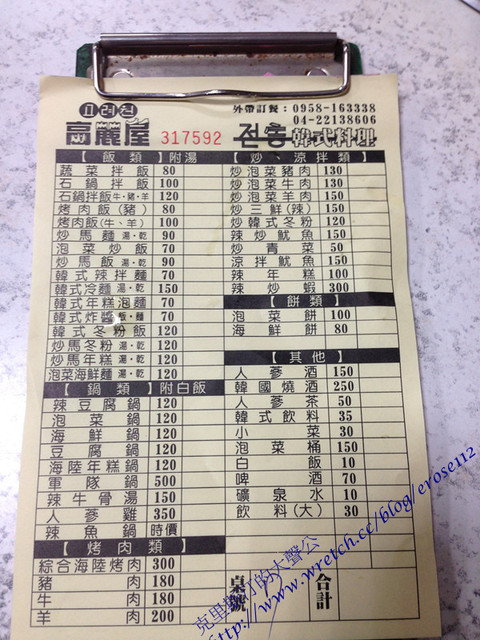 고려정
高麗屋
317592
外帶訂餐：0958-163338
04-22138606
전통韓式料理
【飯類】附湯
蔬菜拌飯 80
石鍋拌飯 100
石鍋拌飯牛、豬、羊 120
烤肉飯(豬) 80
烤肉飯(牛、羊) 100
炒馬麵 湯、乾 90
泡菜炒飯 70
炒馬飯 湯、乾 90
韓式辣拌麵 70
韓式冷麵 湯、乾 150
韓式年糕泡麵 70
韓式炸醬飯、麵 70
韓式冬粉飯 120
炒馬冬粉 湯、乾 120
炒馬年糕 湯、乾 120
泡菜海鮮麵 湯、乾 120
【鍋類】附白飯
辣豆腐鍋 120
泡菜鍋 120
海鮮鍋 120
豆腐鍋 120
海陸年糕鍋 120
軍隊鍋 500
辣牛骨湯 150
人蔘雞 350
辣魚鍋 時價
【烤肉類】
綜合海陸烤肉 300
豬肉 180
牛肉 180
羊肉 200
【炒、涼拌類】
炒泡菜豬肉 130
炒泡菜牛肉 130
炒泡菜羊肉 150
炒三鮮(辣) 150
炒韓式冬粉 120
辣炒魷魚 150
炒青菜 50
涼拌魷魚 150
辣年糕 100
辣炒蝦 300
【餅類】
泡菜餅 100
海鮮餅 80
【其他】
人蔘酒 150
韓國燒酒 250
人蔘茶 50
韓式飲料 35
小菜 30
泡菜桶 150
白飯 10
啤酒 70
礦泉水 10
飲料(大) 30
桌號
合計
克里斯丁的大聲公
http://www.wretch.cc/blog/erose112